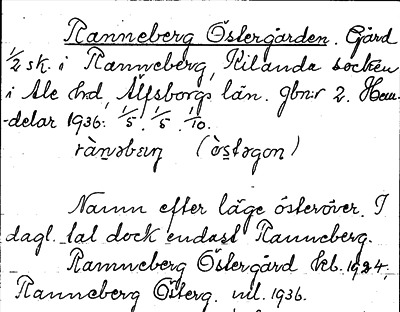 Ranneberg Östergården. Gård
1/2 sk. i Ranneberg, Kilanda socken
i Ale hd, Älfsborgs län. Gbnr 2. Hem-
-delar 1936: 1/5. 1/5. 1/10.
rànəbærj (òstəgoṇ)
Namn efter läge österöver. I
dagl. tal dock endast Ranneberg.
Ranneberg Östergård kb. 1924,
Ranneberg Österg. ml. 1936.